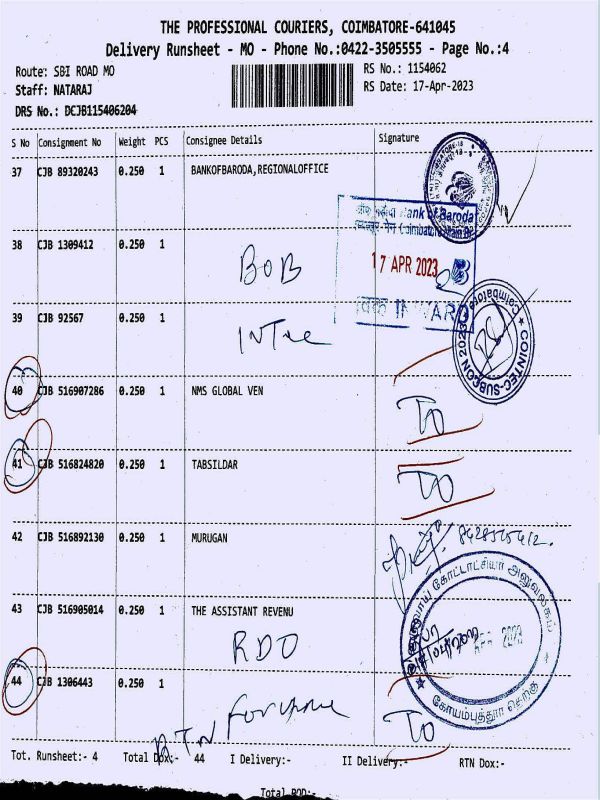 THE PROFESSIONAL COURIERS, COIMBATORE-641045
Delivery Runsheet - MO - Phone No.:0422-3505555 - Page No.:4
Route: SBI ROAD MO
RS No.: 1154062
Staff: NATARAJ
RS Date: 17-Apr-2023
DRS No.: DCJB115406204
S No Consignment No Weight PCS Consignee Details Signature
37 CJB 89320243 0.250 1 BANKOFBARODA,REGIONALOFFICE
Bank of Baroda
38 CJB 1309412 0.250 1
17 APR 2023
BOB
39 CJB 92567 0.250 1
COINTEC-SUBCON 2023 Coimbatore
40 CJB 516907286 0.250 1 NMS GLOBAL VEN
TO
41 CJB 516824820 0.250 1 TABSILDAR
TO
42 CJB 516892130 0.250 1 MURUGAN
43 CJB 516905014 0.250 1 THE ASSISTANT REVENU
2023
RDO
கோயம்புத்தூர் தெற்கு
44 CJB 1306443 0.250 1
TO
RTN
Tot. Runsheet:- 4 Total Dox:- 44 I Delivery:- II Delivery:- RTN Dox:-
Total POD:-